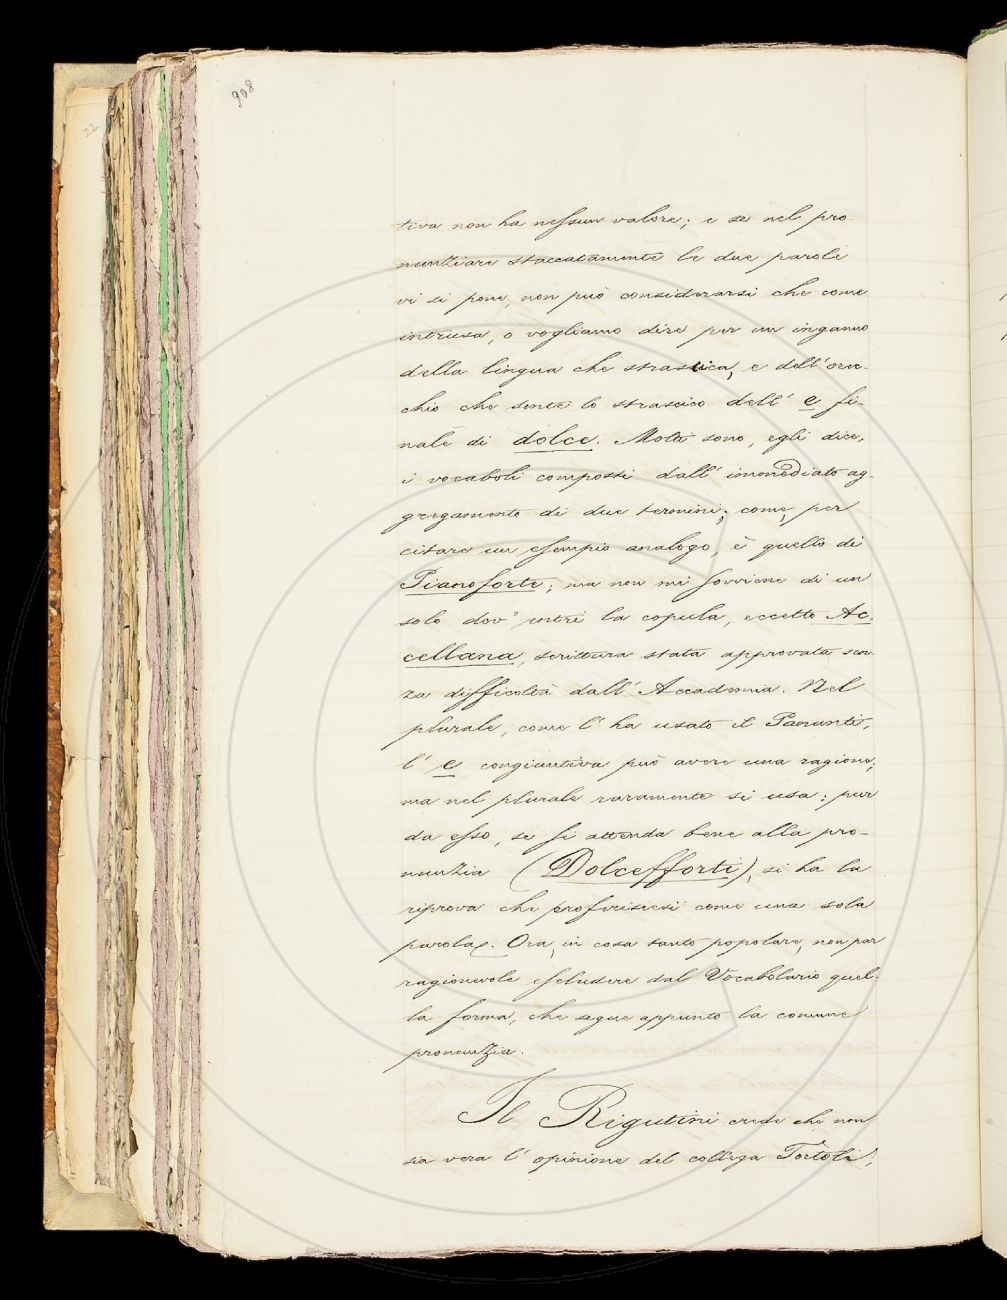 908
22
tiva non ha nessun valore; e se nel pro-
nunziare staccatamente le due parole
vi si pone, non può considerarsi che come
intrusa, o vogliamo dire per un inganno
della lingua che strascica, e dell'orec-
chio che sente lo strascico dell' e fi-
nale di dolce. Molti sono, egli dice,
i vocaboli composti dall' immediato ag-
gregamento di due termini; come, per
citare un esempio analogo, è quello di
Pianoforte; ma non mi sovviene di un
solo dov' entri la copula, eccetto Ac-
cellana, scrittura stata approvata sen-
za difficoltà dall' Accademia. Nel
plurale, come l' ha usato il Pananti,
l' e congiuntiva può avere una ragione;
ma nel plurale raramente si usa: pur
da esso, se si attenda bene alla pro-
nunzia (Dolcefforti), si ha la
riprova che profferiscesi come una sola
parola. Ora, in cosa tanto popolare, non par
ragionevole escludere dal Vocabolario quel-
la forma, che segue appunto la comune
pronunzia.
Il Rigutini crede che non
sia vera l' opinione del collega Tortoli,